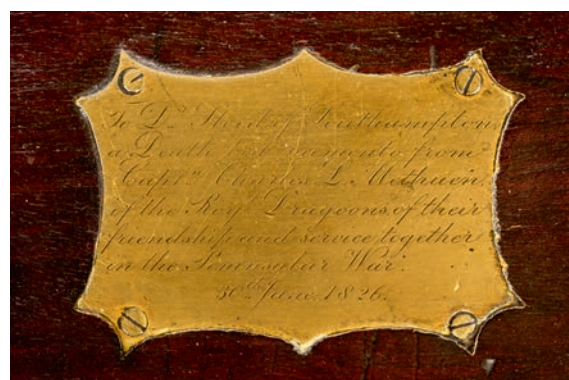 To Dr. of Southampton
a Death from
Captn. Charles L. Methuen,
of the Roy. Dragoons of their
friendship and service together
in the Peninsular War.
30th June, 1826.